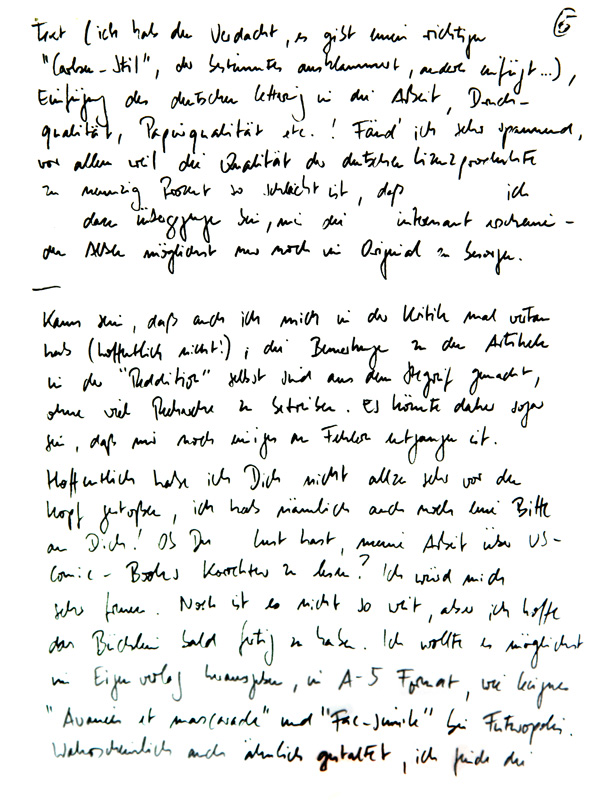 ⑤
Text (ich hab den Verdacht, es gibt einen richtigen
"Carlsen-Stil", der bestimmtes ausklammert, andere einfügt...),
Einfügung des deutschen Lettering in die Arbeit, Druck-
qualität, Papierqualität etc.! Fänd' ich sehr spannend,
vor allem weil die Qualität der deutschen Lizenzprodukte
zu neunzig Prozent so schlecht ist, daß ich
dazu übergegangen bin, mir die interessant erscheinen-
den Alben möglichst nur noch im Original zu besorgen.
Kann sein, daß auch ich mich in der Kritik mal vertan
hab (hoffentlich nicht!), die Bemerkungen zu den Artikeln
in der "Reddition" selbst sind aus dem Stegreif gemacht,
ohne viel Recherche zu betreiben. Es könnte daher sogar
sein, daß mir noch einiges an Fehlern entgangen ist.
Hoffentlich habe ich Dich nicht allzu sehr vor den
Kopf gestoßen, ich hab nämlich auch noch eine Bitte
an Dich! Ob Du Lust hast, meine Arbeit über US-
Comic-Books Korrektur zu lesen? Ich würd mich
sehr freuen. Noch ist es nicht so weit, aber ich hoffe
das Büchlein bald fertig zu haben. Ich wollte es möglichst
im Eigenverlag herausgeben, in A-5 Format, wie
"Avanies et mascarade" und "Fac-simile" bei Futuropolis.
Wahrscheinlich auch ähnlich gestaltet, ich finde die